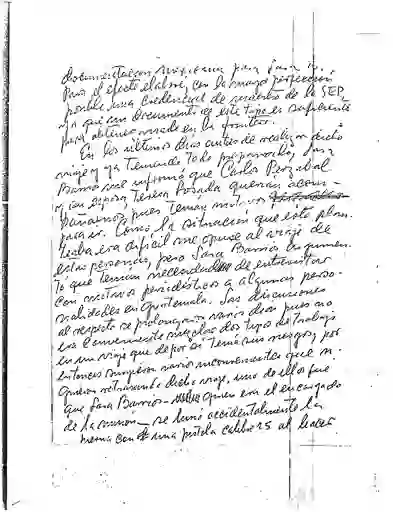 documentación mexicana para Sara B.
Para el efecto elaboré, con la mayor perfección
posible una credencial de maestro de la SEP,
ya que un documento de este tipo es suficiente
para obtener en la frontera.
En los últimos días antes de realizar dicho
viaje y ya teniendo todo preparado, Sara
Barrios me informó que Carlos Perzabal
y su esposa Teresa Posada querían acom-
pañarnos, pues tenían motivos
para ir. Como la situación que éste plan-
teaba era difícil me opuse al viaje de
estas personas, pero Sara Barrios argumen-
tó que tenían necesidad de entrevistar
con motivos periodísticos a algunas perso-
nalidades en Guatemala. Las discusiones
al respecto se prolongaron varios días pues no
era conveniente mezclar dos tipos de trabajo
en un viaje que de por sí tenía sus riesgos y por
entonces surgieron varios inconvenientes que
retrasando dicho viaje, uno de ellos fue
que Sara Barrios quien era el encargado
de la misión se hirió accidentalmente la
pierna con una pistola calibre 25 al